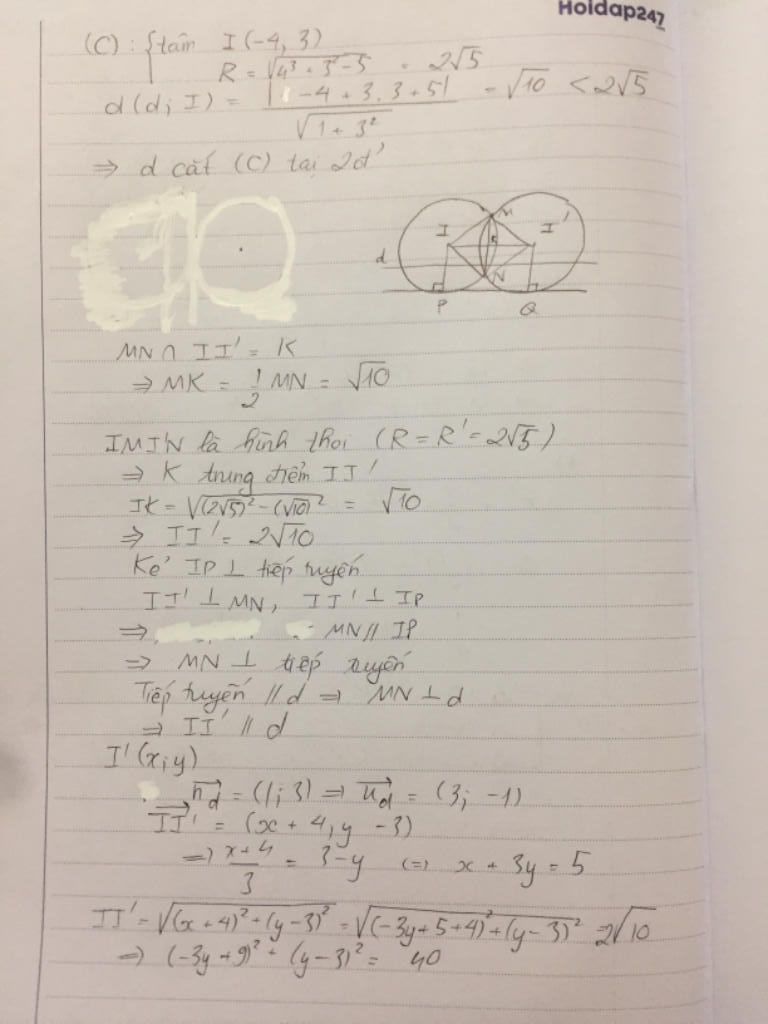 Hoidap247
(C) : { tâm I (-4, 3)
R = √(4³ + 3² - 5) = 2√5
d (d; I) = |-4 + 3.3 + 5| / √(1 + 3²) = √10 < 2√5
⇒ d cắt (C) tại 2đ'
M
I I'
K
d
N
P Q
MN ∩ II' = K
⇒ MK = 1/2 MN = √10
IMI'N là hình thoi (R = R' = 2√5)
⇒ K trung điểm II'
IK = √((2√5)² - (√10)²) = √10
⇒ II' = 2√10
Kẻ IP ⊥ tiếp tuyến
II' ⊥ MN, II' ⊥ IP
⇒ MN // IP
⇒ MN ⊥ tiếp tuyến
Tiếp tuyến // d ⇒ MN ⊥ d
⇒ II' // d
I' (x; y)
n⃗d = (1; 3) ⇒ u⃗d = (3; -1)
II'⃗ = (x + 4, y - 3)
⇒ (x + 4)/3 = 3 - y (=) x + 3y = 5
II' = √((x + 4)² + (y - 3)²) = √((-3y + 5 + 4)² + (y - 3)²) = 2√10
⇒ (-3y + 9)² + (y - 3)² = 40